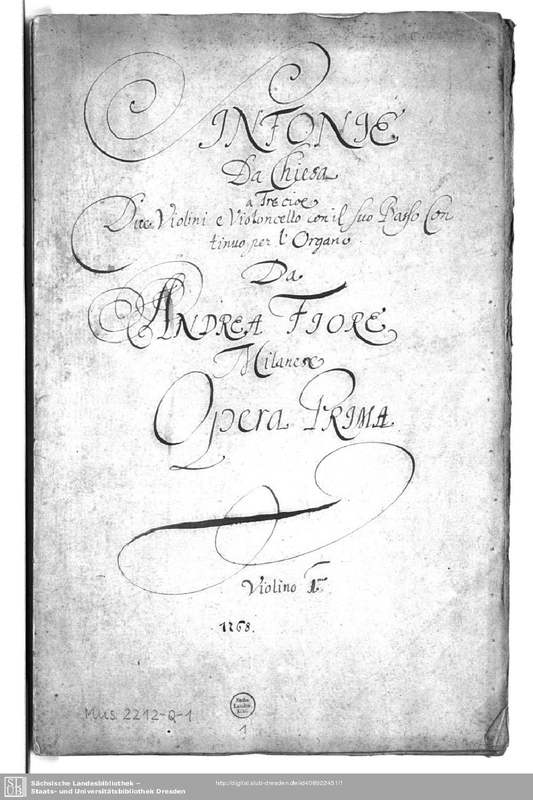 SINFONIE
Da Chiesa
a Tre cioe
Due Violini e Violoncello con il suo Basso Con
tinuo per l'Organo
Da
ANDREA FIORE
Milanese
Opera PRIMA
Violino 1mo
1268.
Mus. 2212-Q-1
Sächs.
Landes-
Bibl.
1
SLUB
Sächsische Landesbibliothek –
Staats- und Universitätsbibliothek Dresden
http://digital.slub-dresden.de/id408922451/1